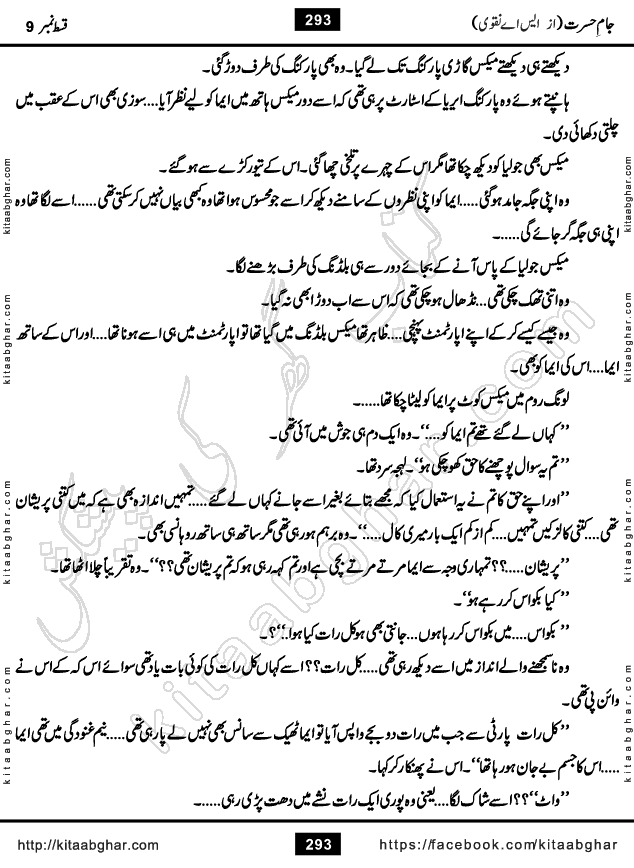 جام حسرت (از ایس اے نقوی)
293
قسط نمبر 9
دیکھتے ہی دیکھتے میکس گاڑی پارکنگ تک لے گیا۔ وہ بھی پارکنگ کی طرف دوڑ گئی۔
ہانپتے ہوئے وہ پارکنگ ایریا کے اسٹارٹ پر ہی تھی کہ اسے دور میکس ہاتھ میں ایما کو لیے نظر آیا....سوزی بھی اس کے عقب میں
چلتی دکھائی دی۔
میکس بھی جولیا کو دیکھ چکا تھا مگر اس کے چہرے پر تلخی چھا گئی۔ اس کے تیور کڑے سے ہو گئے۔
وہ اپنی جگہ جامد ہو گئی.....ایما کو اپنی نظروں کے سامنے دیکھ کر اسے جو محسوس ہوا تھا وہ کبھی بیاں نہیں کر سکتی تھی......اسے لگا تھا وہ
اپنی ہی جگہ گر جائے گی......۔
میکس جولیا کے پاس آنے کے بجائے دور سے ہی بلڈنگ کی طرف بڑھنے لگا۔
وہ اتنی تھک چکی تھی...نڈھال ہو چکی تھی کہ اس سے اب دوڑا بھی نہ گیا۔
وہ جیسے کیسے کر کے اپنے اپارٹمنٹ پہنچی....ظاہر تھا میکس بلڈنگ میں گیا تھا تو اپارٹمنٹ میں ہی اسے ہونا تھا...اور اس کے ساتھ
ایما....اس کی ایما کو بھی۔
لونگ روم میں میکس کوٹ پر ایما کو لیٹا چکا تھا......۔
’’ کہاں لے گئے تھے تم ایما کو....‘‘۔ وہ ایک دم ہی جوش میں آئی تھی۔
’’ تم یہ سوال پوچھنے کا حق کھو چکی ہو‘‘۔ لہجہ سرد تھا۔
’’اور اپنے حق کا تم نے یہ استعمال کیا کہ مجھے بتائے بغیر اسے جانے کہاں لے گئے.....تمہیں اندازہ بھی ہے کہ میں کتنی پریشان
تھی....کتنی کالز کیں تمہیں....کم از کم ایک بار میری کال....‘‘۔ وہ برہم ہو رہی تھی مگر ساتھ ہی ساتھ روہانسی بھی۔
’’پریشان.....؟؟ تمہاری وجہ سے ایما مرتے مرتے بچی ہے اور تم کہہ رہی ہو کہ تم پریشان تھی؟؟‘‘۔ وہ تقریباً چلا اٹھا تھا۔
’’ کیا بکواس کر رہے ہو‘‘۔
’’ بکواس....میں بکواس کر رہا ہوں...جانتی بھی ہو کل رات کیا ہوا..‘‘؟۔
وہ نا سمجھنے والے انداز میں اسے دیکھ رہی تھی.....کل رات؟؟ اسے کہاں کل رات کی کوئی بات یاد تھی سوائے اس کہ کے اس نے
وائن پی تھی۔
’’ کل رات پارٹی سے جب میں رات دو بجے واپس آیا تو ایما ٹھیک سے سانس بھی نہیں لے پا رہی تھی.....نیم غنودگی میں تھی ایما
.....اس کا جسم بے جان ہو رہا تھا‘‘۔ اس نے پھنکار کر کہا۔
’’ واٹ‘‘؟؟ اسے شاک لگا....یعنی وہ پوری ایک رات نشے میں دھت پڑی رہی.....۔
kitaabghar.com
kitaabghar.com
kitaabghar.com
kitaabghar.com
kitaabghar.com
kitaabghar.com
kitaabghar.com
kitaabghar.com
kitaabghar.com
http://kitaabghar.com
293
https://facebook.com/kitaabghar